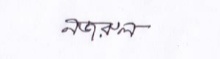 নজরুল